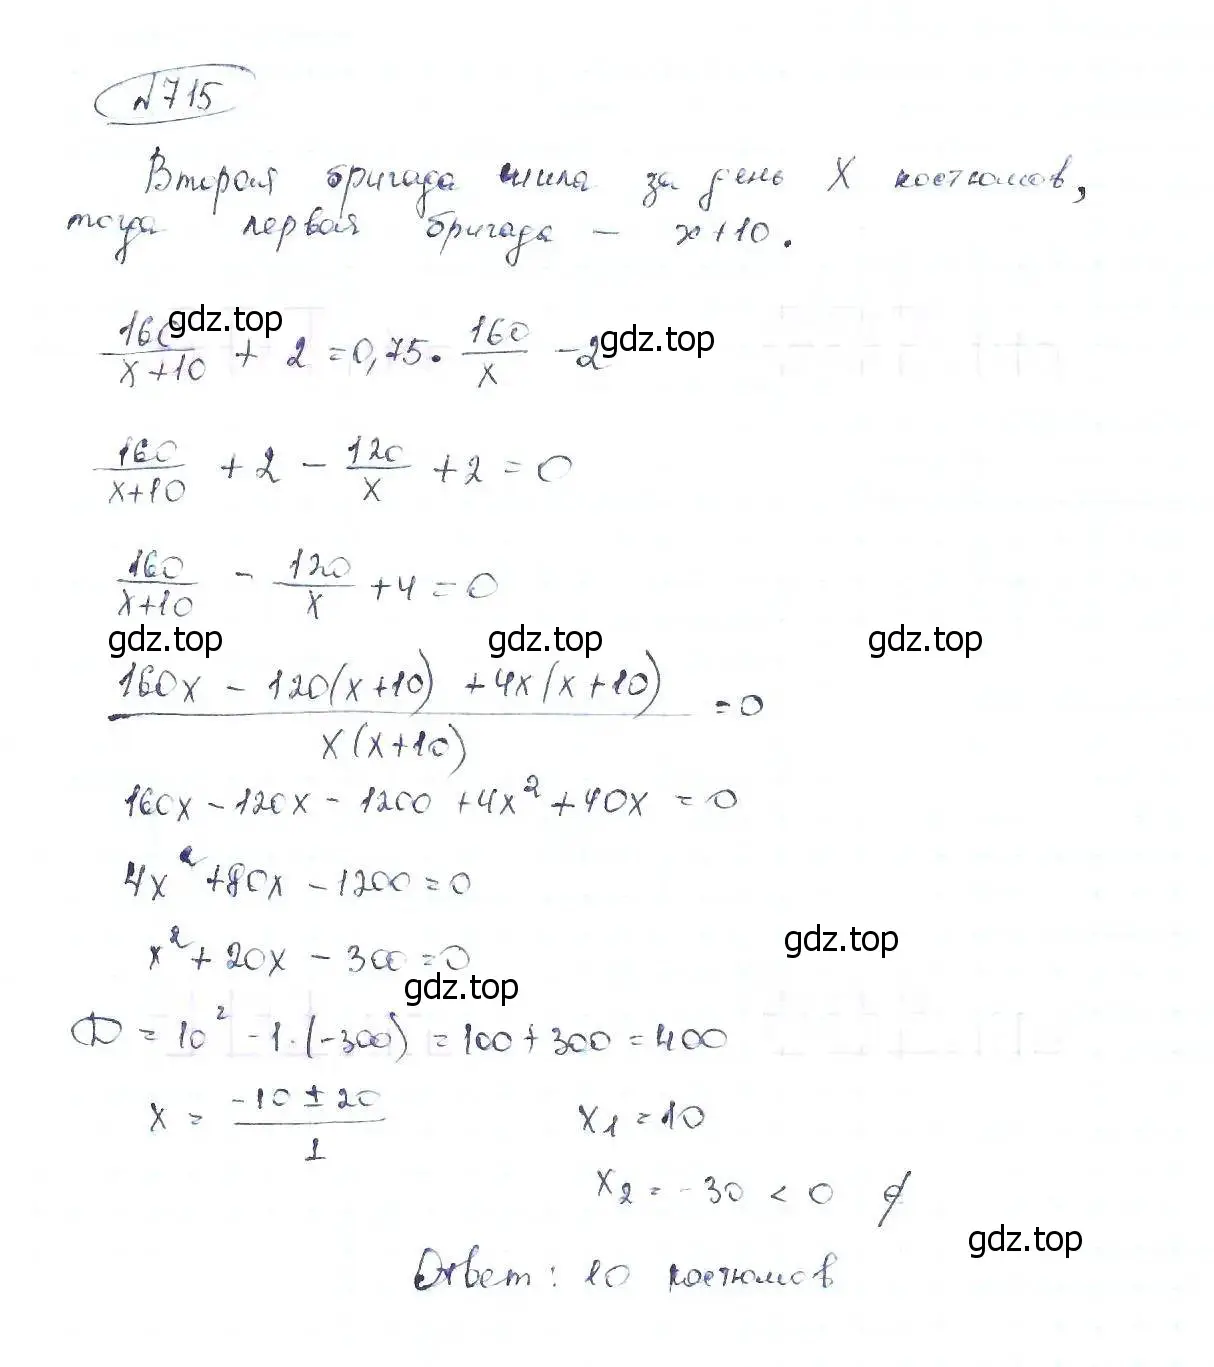 №715
Вторая бригада шила за день X костюмов,
тогда первая бригада – x+10.
160/(x+10) + 2 = 0,75 · 160/x - 2
gdz.top gdz.top
160/(x+10) + 2 - 120/x + 2 = 0
160/(x+10) - 120/x + 4 = 0
gdz.top gdz.top gdz.top
(160x - 120(x+10) + 4x(x+10))/(x(x+10)) = 0
160x - 120x - 1200 + 4x² + 40x = 0
4x² + 80x - 1200 = 0
gdz.top
x² + 20x - 300 = 0
gdz.top
D = 10² - 1·(-300) = 100 + 300 = 400
x = (-10 ± 20)/1 x₁ = 10
x₂ = -30 < 0
gdz.top
Ответ: 10 костюмов